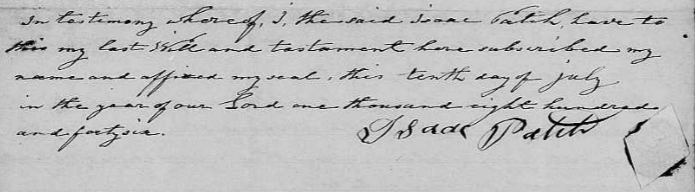 In testimony whereof, I, the said Isaac Patch, have to
this my last Will and testament here subscribed my
name and affixed my seal, this tenth day of july
in the year of our Lord one thousand eight hundred
and fortysix.
Isaac Patch